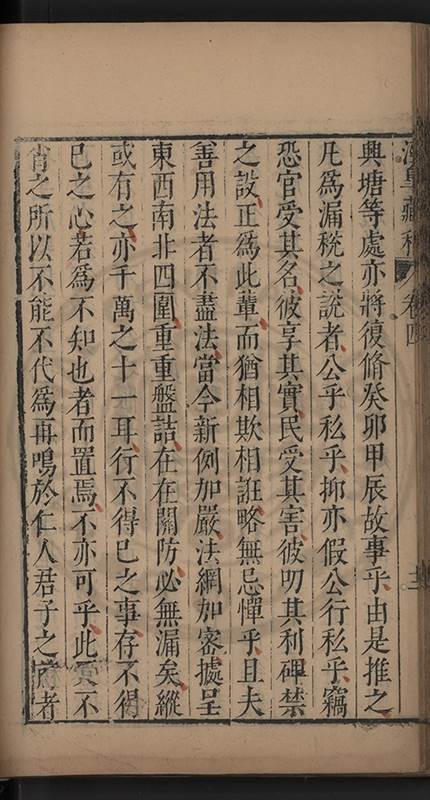 藏稿 卷四
興塘等處亦將復脩癸卯甲辰故事乎由是推之
凡爲漏稅之說者公乎私乎抑亦假公行私乎竊
恐官受其名彼享其實民受其害彼叨其利碑禁
之設正爲此輩而猶相欺相誑略無忌憚乎且夫
善用法者不盡法當今新例加嚴法網加密據呈
東西南北四圍重重盤詰在在關防必無漏矣縱
或有之亦千萬之十一耳行不得已之事存不得
已之心若爲不知也者而置焉不亦可乎此不
肖之所以不能不代爲再鳴於仁人君子之者